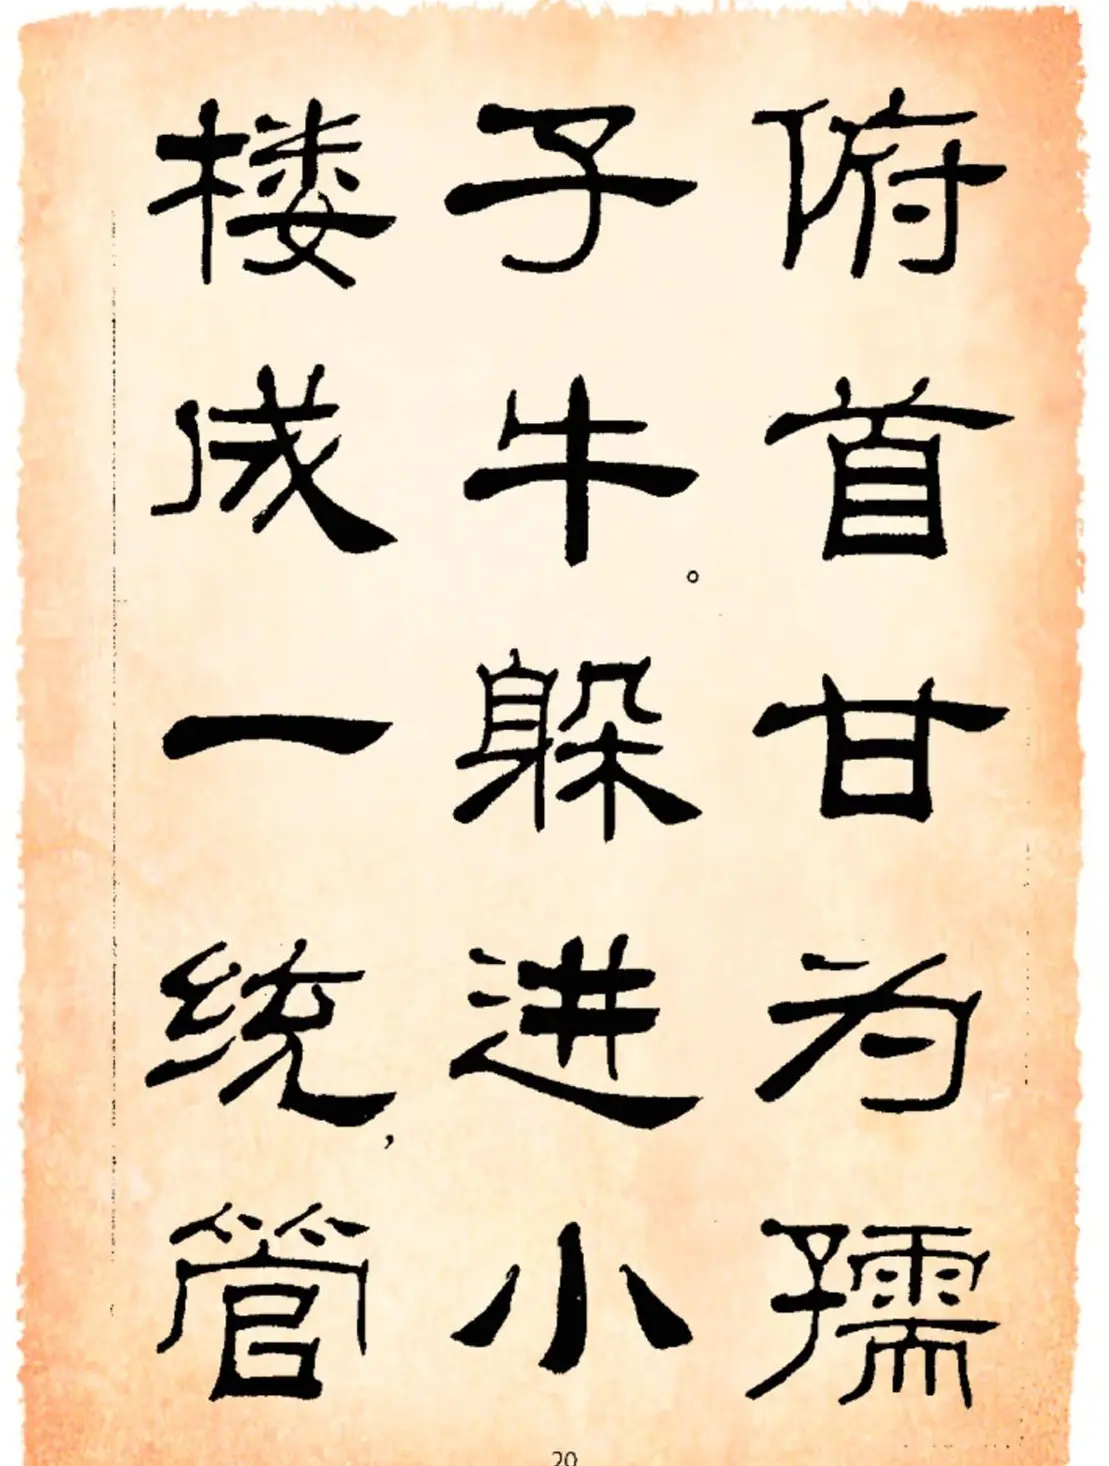 俯首甘为孺
子牛。躲进小
楼成一统，管
20